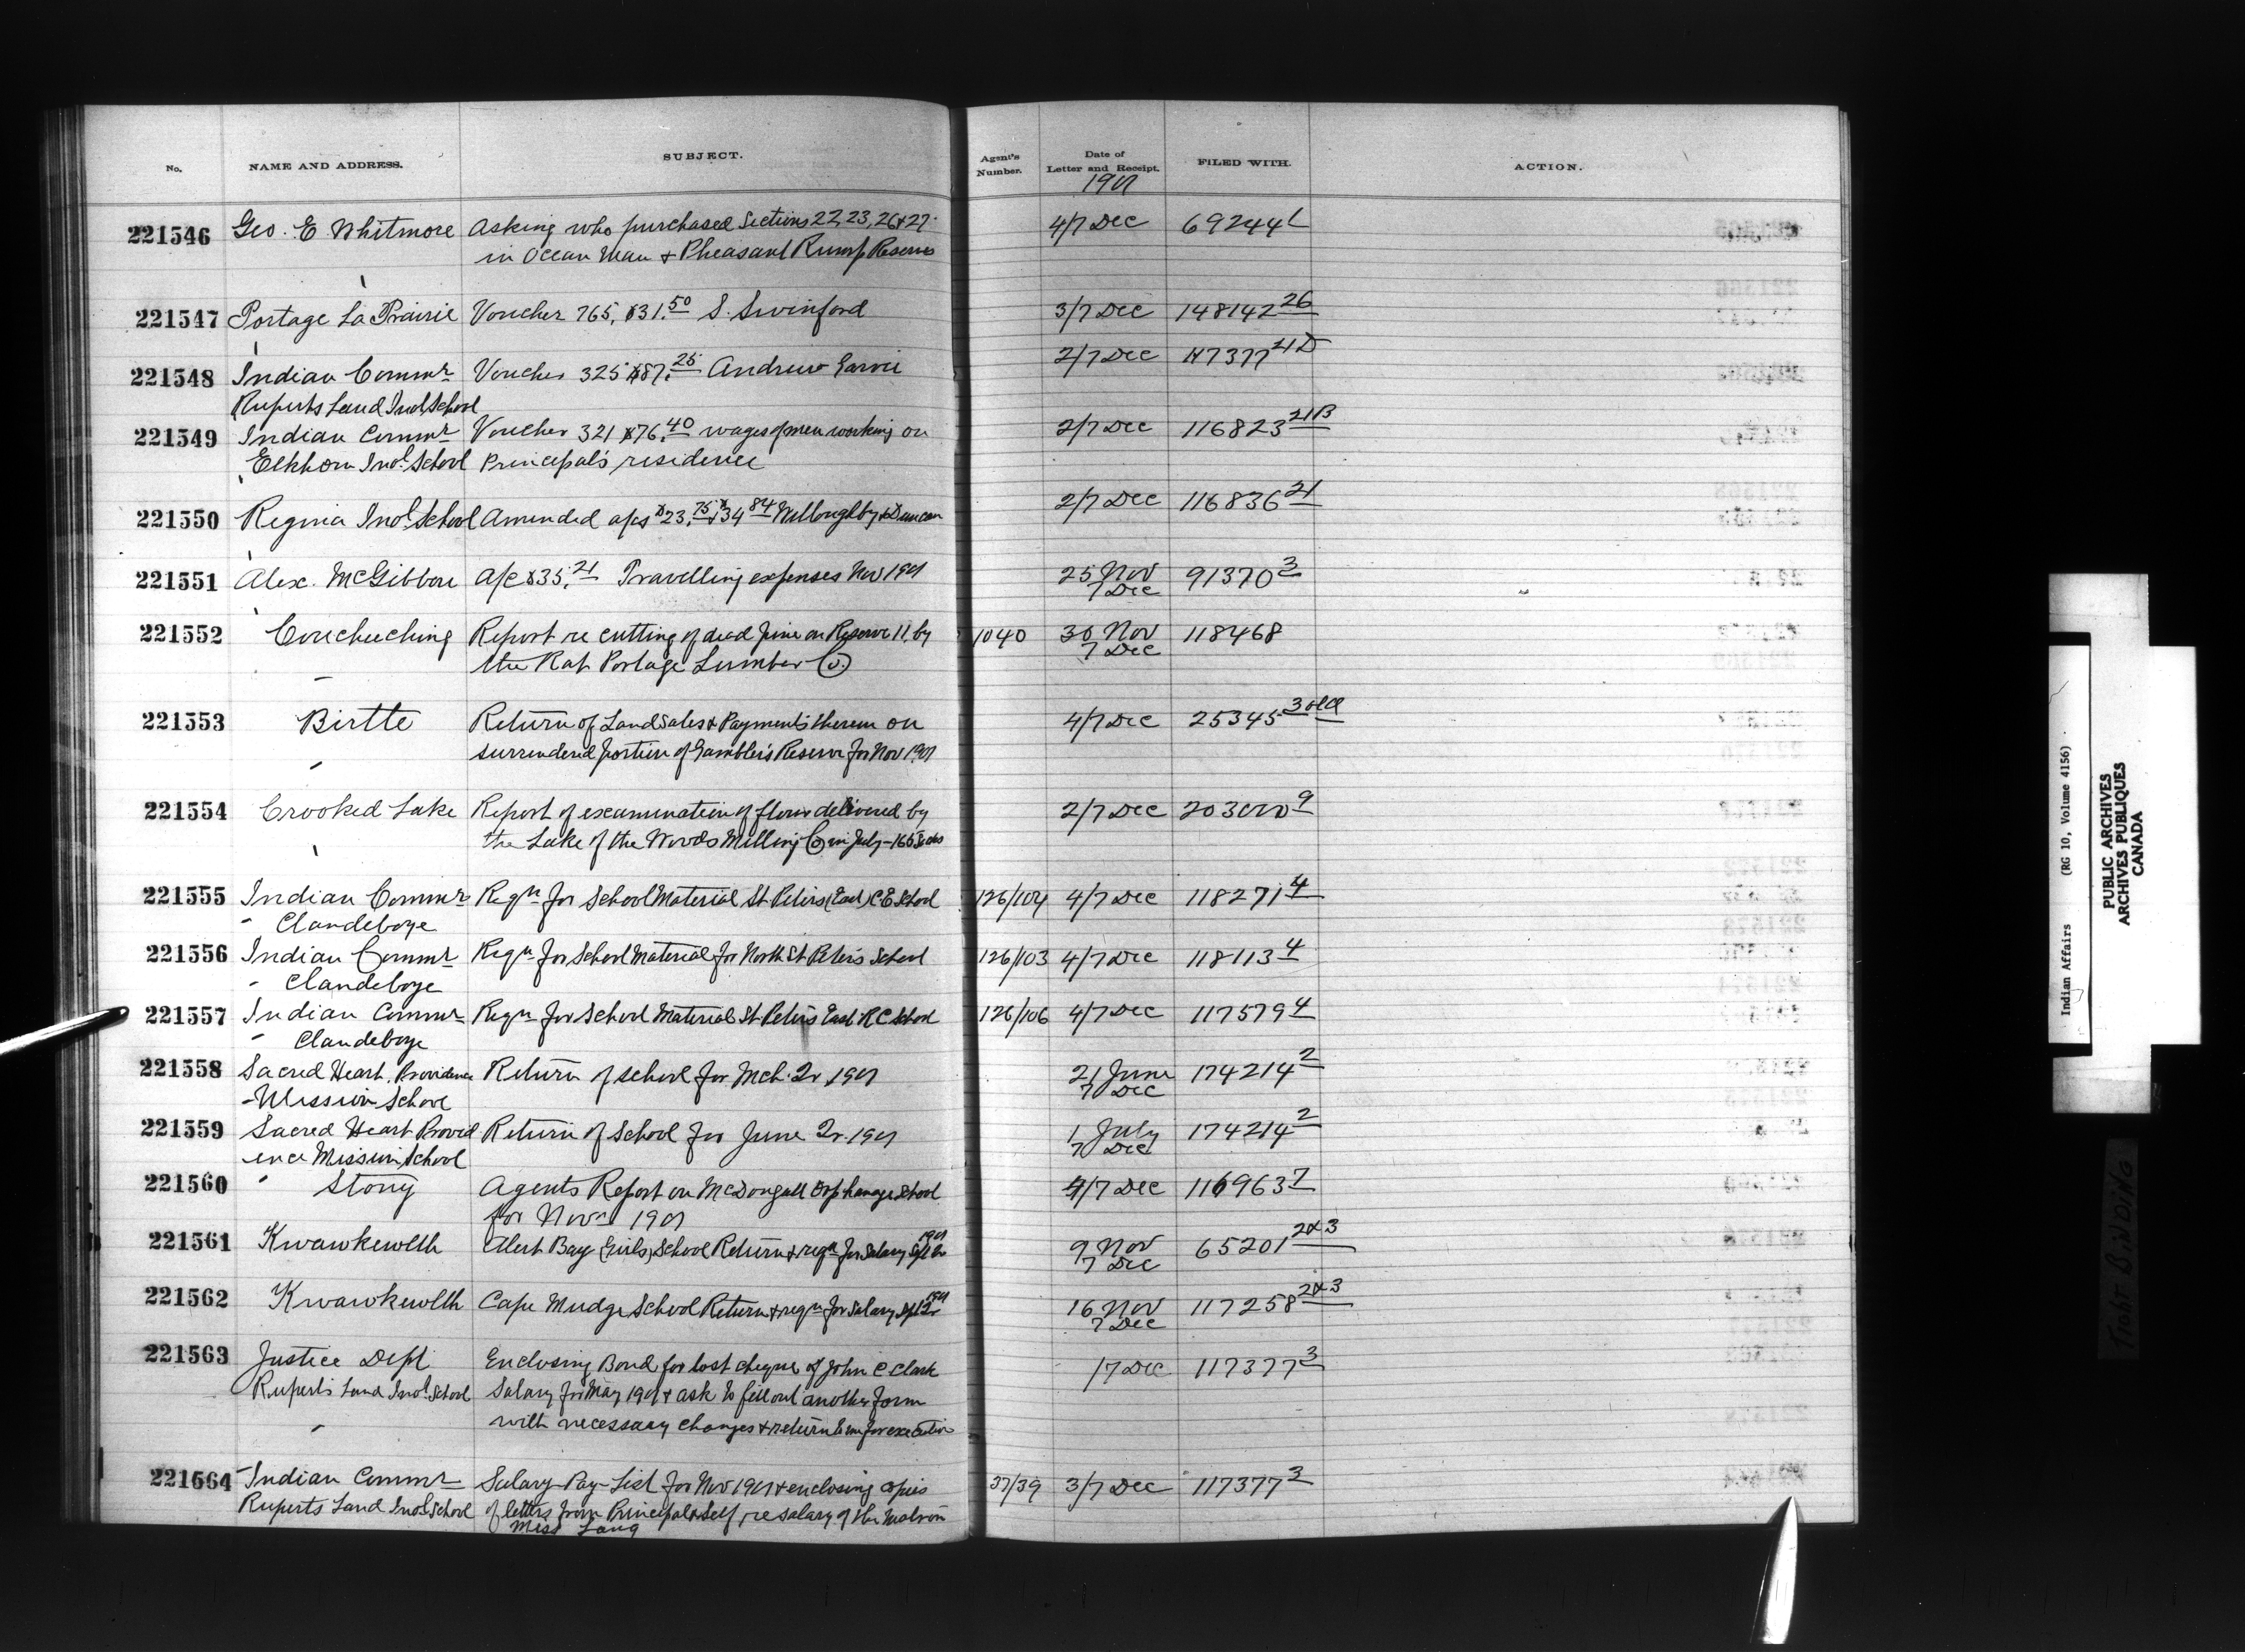 No. NAME AND ADDRESS. SUBJECT. Agent's Number. Date of Letter and Receipt. FILED WITH. ACTION.
1901
221546 Geo. E. Whitmore Asking who purchased Sections 22, 23, 26 & 27 4/7 Dec 69244
in Ocean Man & Pheasant Rump Reserves
221547 Portage La Prairie Voucher 765, $31.50 S. Swinford 3/7 Dec 148142 26
221548 Indian Commr Voucher 325 $87.25 Andrew 2/7 Dec 117377 21D
Ruperts Land Indl School
221549 Indian Commr Voucher 321 $76.40 wages of men working on 2/7 Dec 116823 21B
Elkhorn Indl School Principal's residence
221550 Regina Indl School Amended a/cs $23.75 & $34.84 Willoughby & Duncan 2/7 Dec 116836 21
221551 Alex. McGibbon a/c $35.21 Travelling expenses Nov 1901 25 Nov 91370 3
7 Dec
221552 Coucheeching Report re cutting of dead pine on Reserve 11, by 1040 30 Nov 118468
the Rat Portage Lumber Co. 7 Dec
221553 Birtle Return of Land Sales & Payments thereon on 4/7 Dec 25345 3
surrendered portion of Gambler's Reserve for Nov 1901
221554 Crooked Lake Report of examination of flour delivered by 2/7 Dec 203000 9
the Lake of the Woods Milling Co in July - 165 Sacks
221555 Indian Commr Reqn for School Material St Peters (East) C E School 126/104 4/7 Dec 118271 4
Clandeboye
221556 Indian Commr Reqn for School Material for North St Peters School 126/103 4/7 Dec 118113 4
Clandeboye
221557 Indian Commr Reqn for School Material St Peter's East R C School 126/106 4/7 Dec 117579 4
Clandeboye
221558 Sacred Heart, Providence Return of school for Mch. Qr 1901 21 June 174214 2
Mission School 7 Dec
221559 Sacred Heart Provid Return of School for June Qr. 1901 1 July 174214 2
ence Mission School 7 Dec
221560 Stony Agents Report on McDougall Orphanage School 4/7 Dec 116963 7
for Novr 1901
221561 Kwawkewlth Alert Bay (Girls) School Return & reqn for Salary Sept Qr 1901 9 Nov 65201 2&3
7 Dec
221562 Kwawkewlth Cape Mudge School Return & reqn for Salary Sept Qr 1901 16 Nov 117258 2&3
7 Dec
221563 Justice Dept Enclosing Bond for lost cheque of John C Clark 7 Dec 117377 3
Rupert's Land Indl School Salary for May 1901 & ask to fill out another form
with necessary changes & return to for execution
221564 Indian Commr Salary Pay-List for Nov 1901 & enclosing copies 37/39 3/7 Dec 117377 3
Ruperts Land Indl School of letters from Principal & Self, re salary of the Matron
Miss Lang
Indian Affairs (RG 10, Volume 4156)
PUBLIC ARCHIVES
ARCHIVES PUBLIQUES
CANADA
TIGHT BINDING